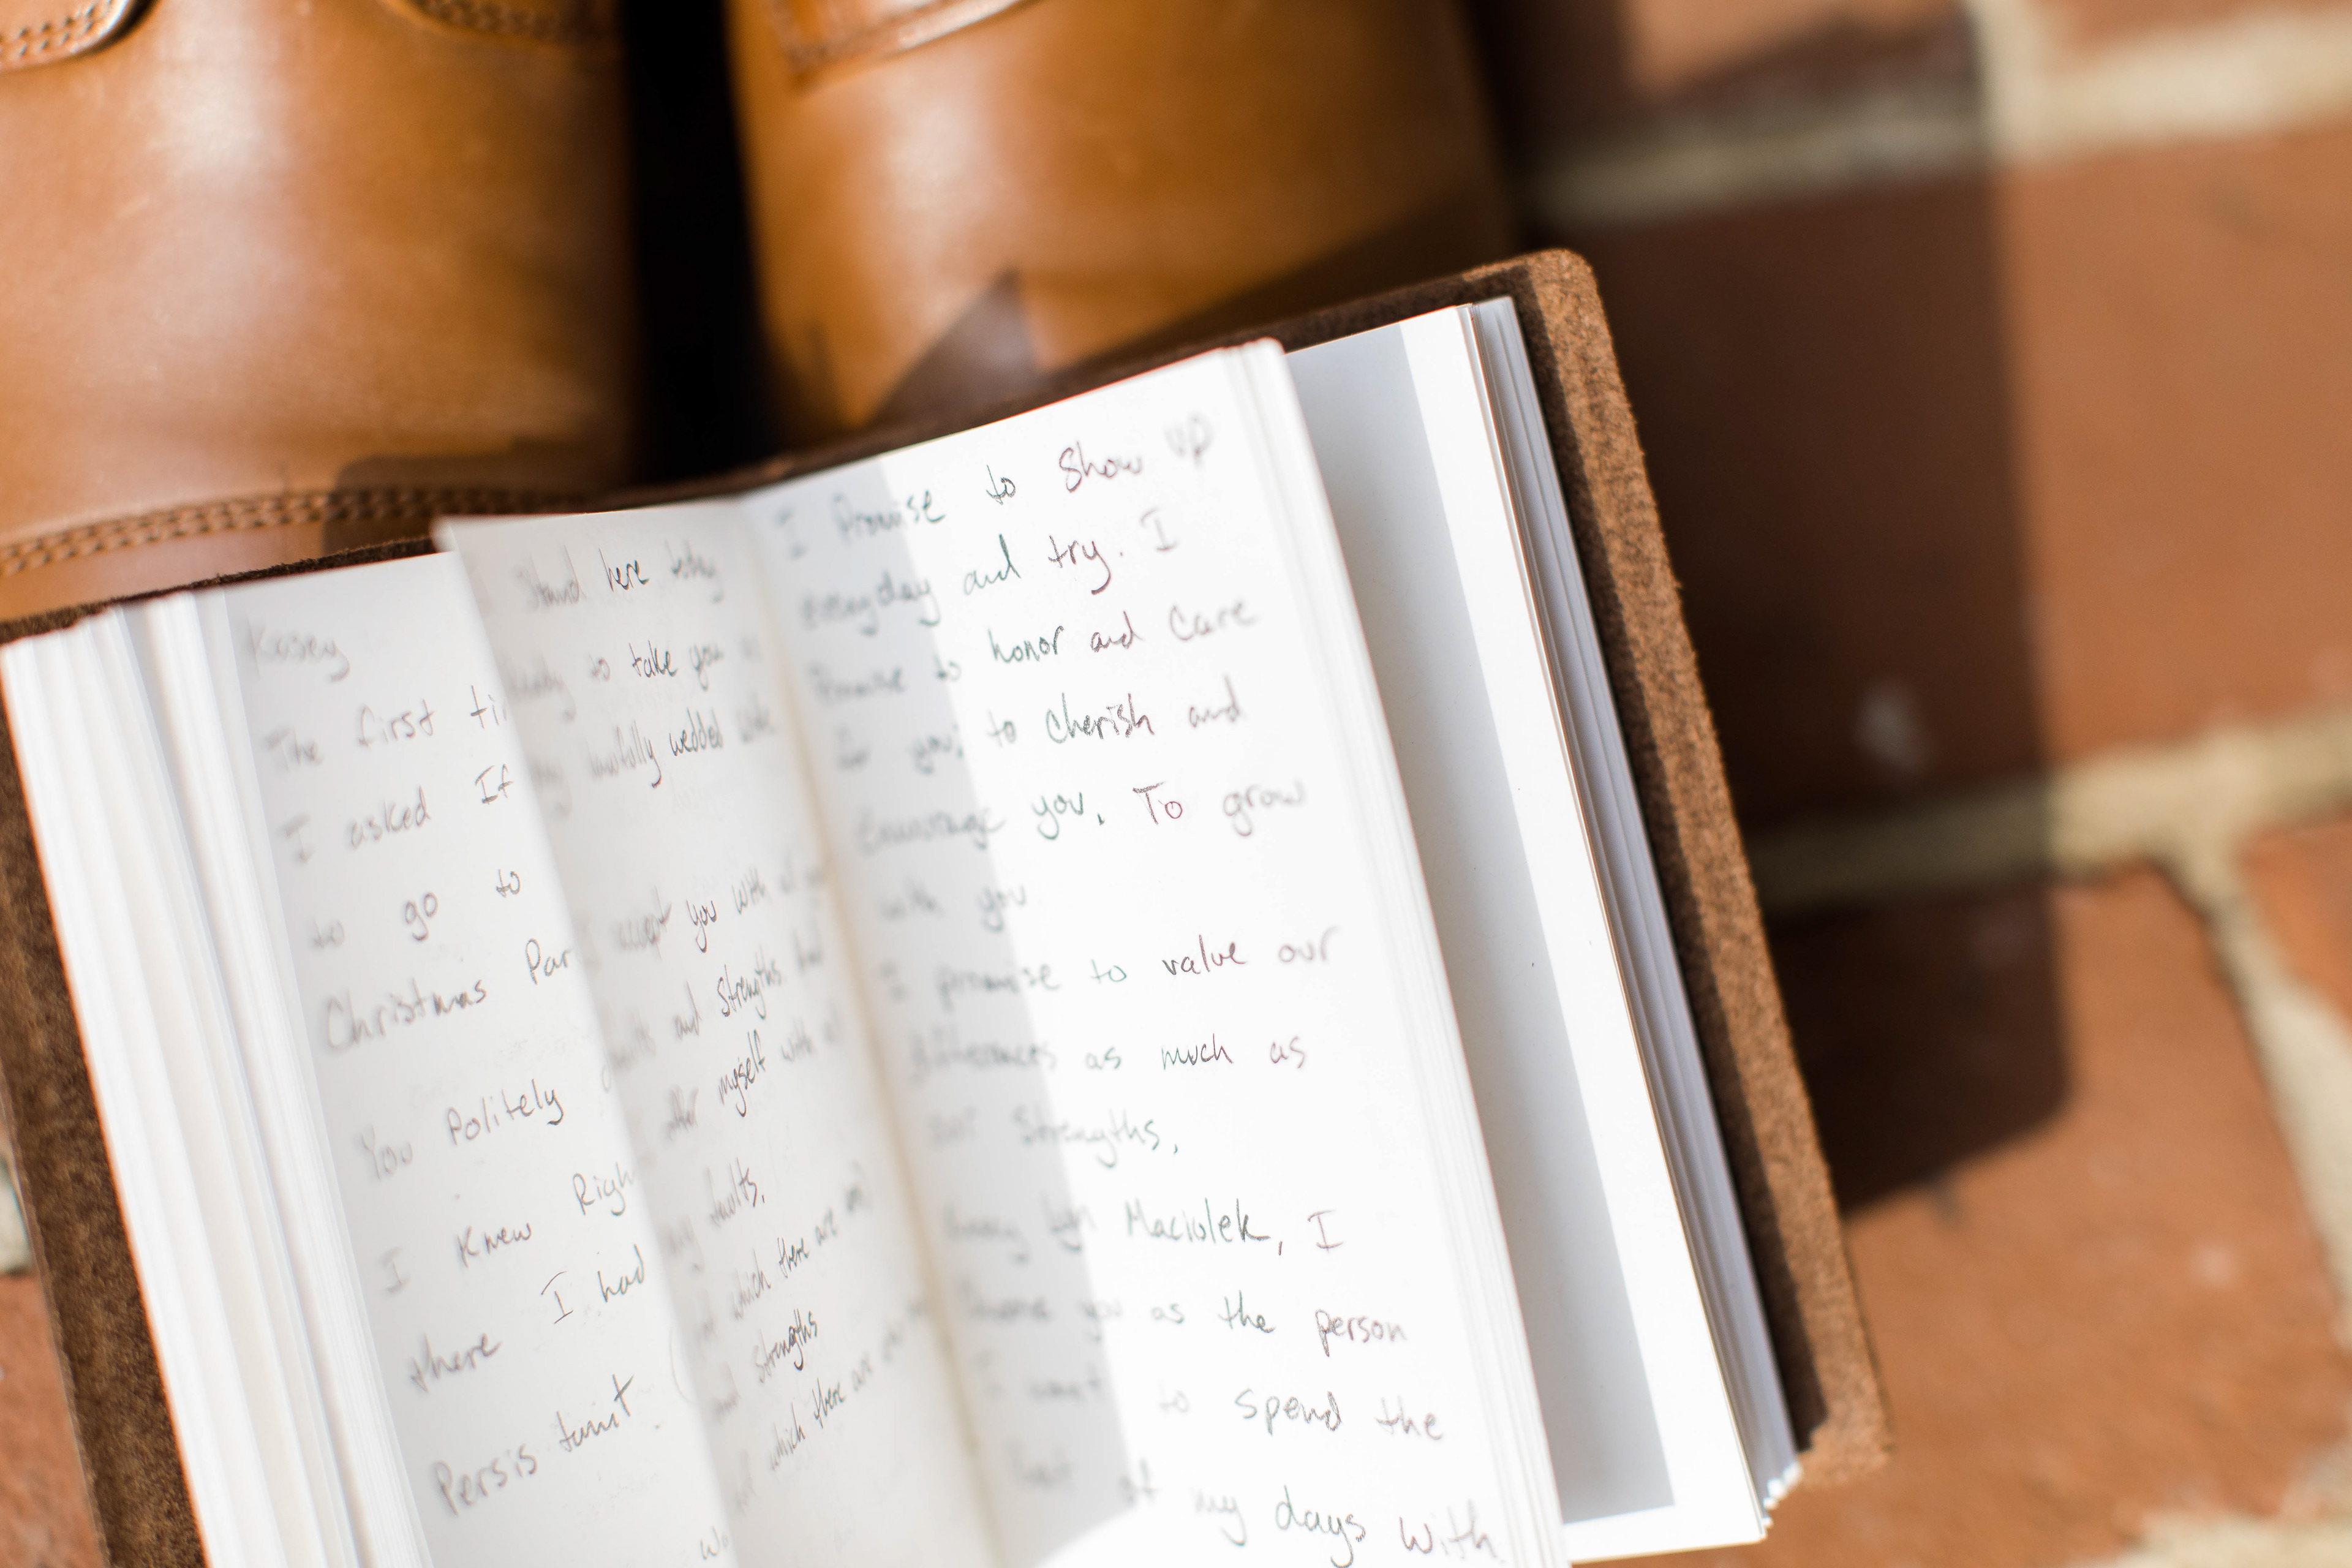 Kasey
The first
I asked If
to go to
Christmas
You Politely
I Knew
there I had
Persis tunt.
I Stand here today
ready to take you as
my lawfully wedded wife
I accept you with all your
faults and Strengths. And
offer myself with all
my faults,
of which there are
and Strengths
of which there are
I Promise to Show up
everyday and try. I
Promise to honor and Care
for you; to Cherish and
Encourage you. To grow
with you.
I promise to value our
differences as much as
our Strengths,
Lyn Maciolek, I
Choose you as the person
I want to spend the
last of my days with.